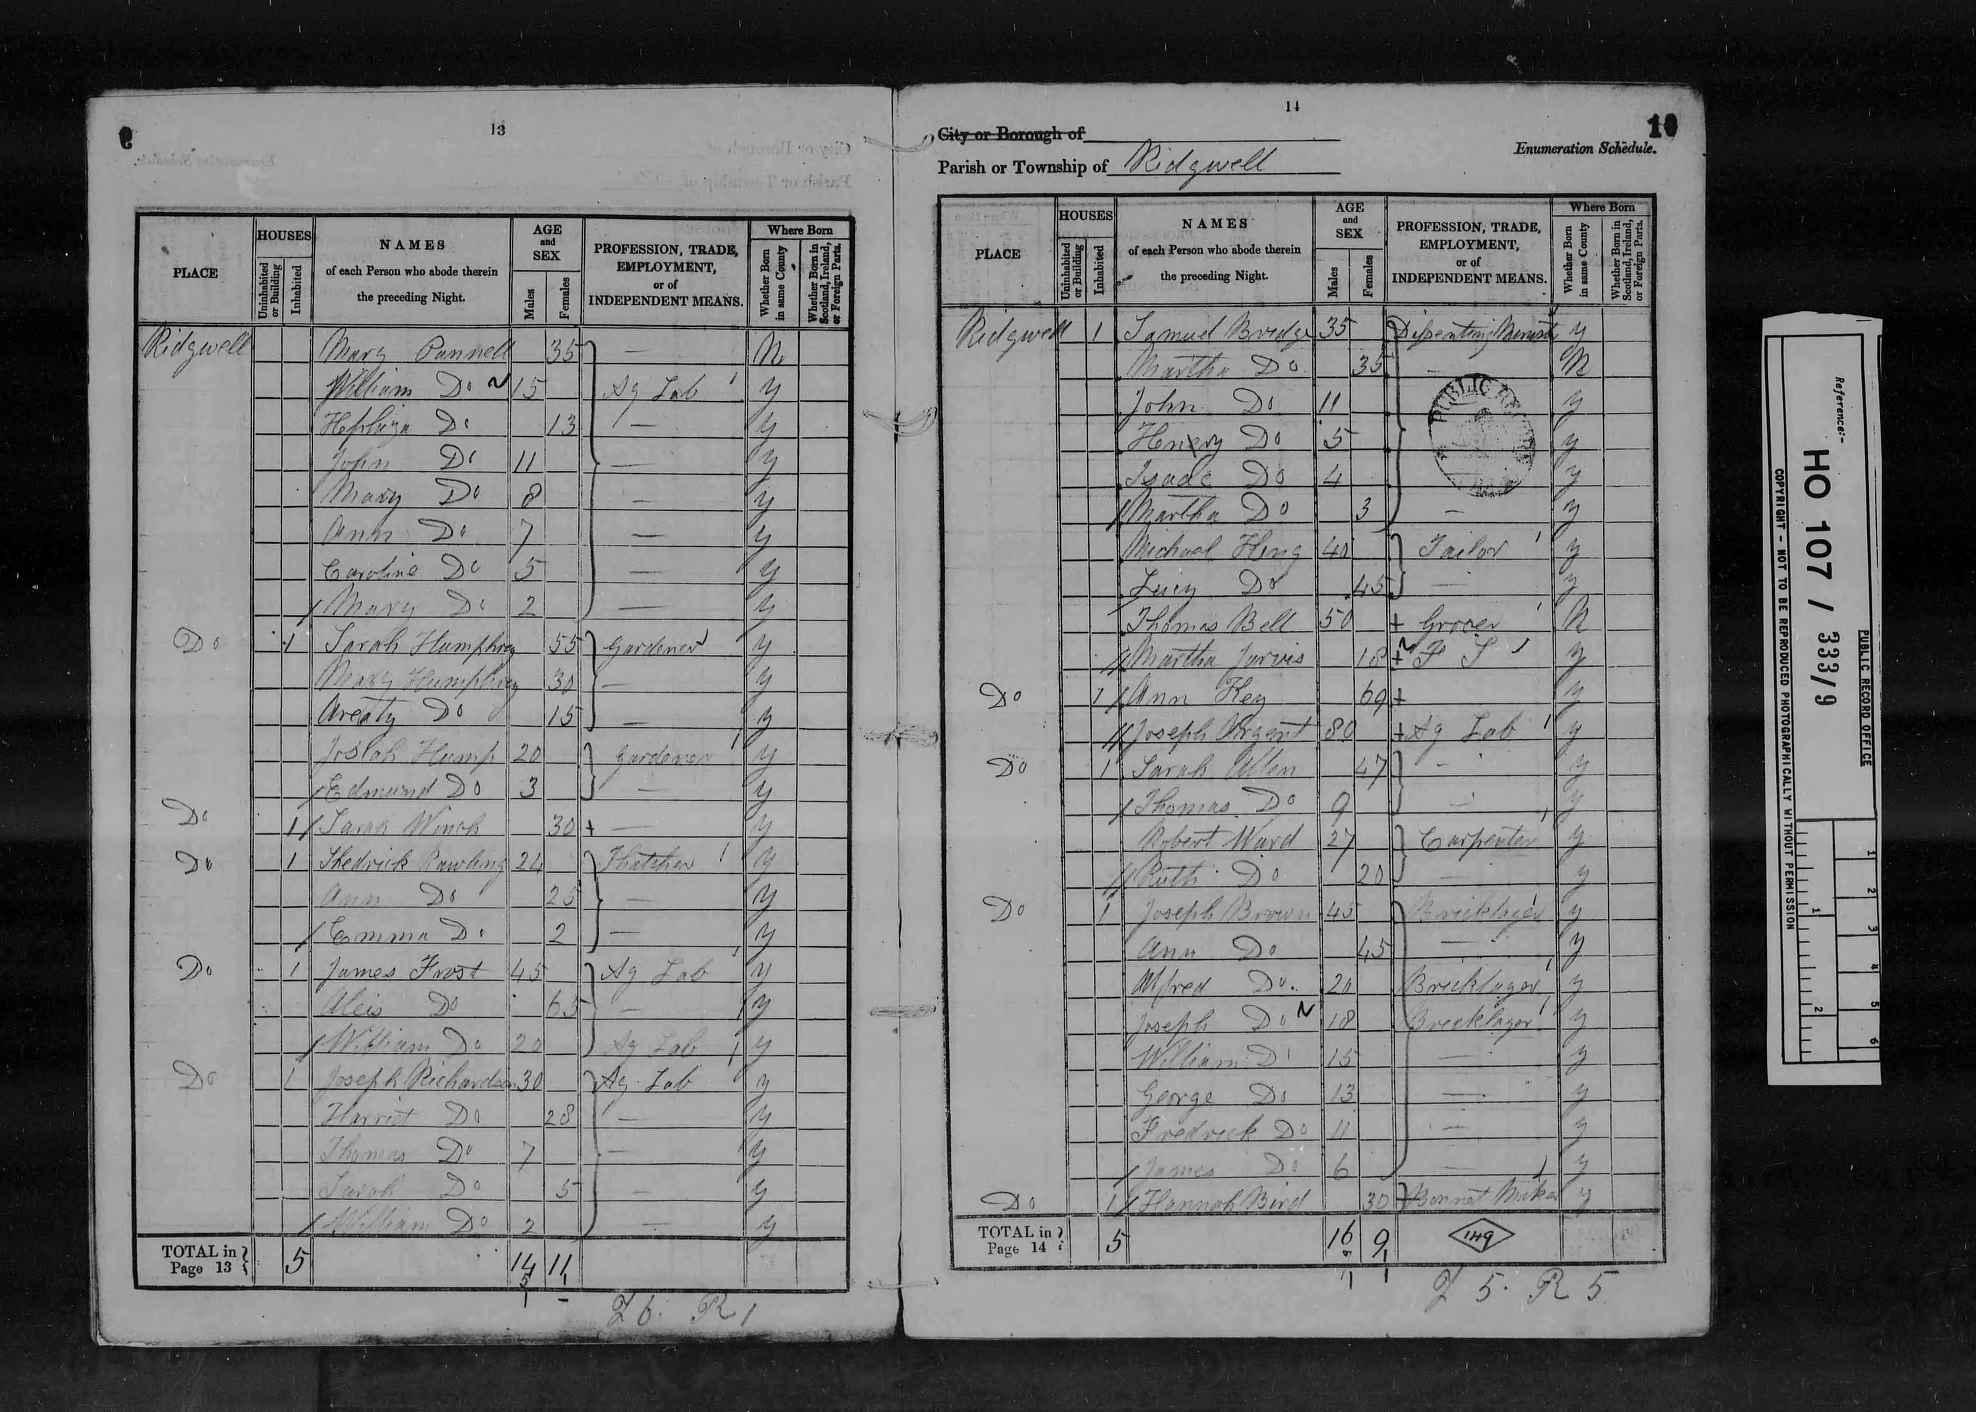 13
PLACE
HOUSES
Uninhabited or Building
Inhabited
NAMES
of each Person who abode therein
the preceding Night.
AGE
and
SEX
Males
Females
PROFESSION, TRADE,
EMPLOYMENT,
or of
INDEPENDENT MEANS.
Where Born
Whether Born in same County
Whether Born in Scotland, Ireland, or Foreign Parts.
Ridgwell Mary Pannell 35 — N
William Do 15 Ag Lab y
Do 13 — y
John Do 11 — y
Mary Do 8 — y
Ann Do 7 — y
Caroline Do 5 — y
Mary Do 2 — y
Do 1 Sarah Humphrey 55 Gardener y
Mary Humphrey 30 — y
Do 15 — y
Josiah Hump 20 Gardener y
Edmund Do 3 — y
Do 1 Sarah Winch 30 — y
Do 1 Shedrick Rawling 24 Thatcher y
Ann Do 25 — y
Emma Do 2 — y
Do 1 James Frost 45 Ag Lab y
Aleis Do 65 — y
William Do 20 Ag Lab y
Do 1 Joseph Richardson 30 Ag Lab y
Harriet Do 28 — y
Thomas Do 7 — y
Sarah Do 5 — y
William Do 2 — y
TOTAL in Page 13 5 14 11
14
City or Borough of
Parish or Township of Ridgwell
10
Enumeration Schedule.
PLACE
HOUSES
Uninhabited or Building
Inhabited
NAMES
of each Person who abode therein
the preceding Night.
AGE
and
SEX
Males
Females
PROFESSION, TRADE,
EMPLOYMENT,
or of
INDEPENDENT MEANS.
Where Born
Whether Born in same County
Whether Born in Scotland, Ireland, or Foreign Parts.
Ridgwell 1 Samuel Bredge 35 Dissenting Minister y
Martha Do 35 — N
John Do 11 y
Henery Do 5 y
Isaac Do 4 y
Martha Do 3 — y
Michael Hing 40 Tailor y
Lucy Do 45 — y
Thomas Bell 50 Grocer N
Martha Jarvis 18 F S y
Do 1 Ann Key 69 y
Joseph 80 Ag Lab y
Do 1 Sarah Allen 47 — y
Thomas Do 9 — y
Robert Ward 27 Carpenter y
Ruth Do 20 — y
Do 1 Joseph Brown 45 Bricklayer y
Ann Do 45 — y
Alfred Do 20 Bricklayer y
Joseph Do 18 Bricklayer y
William Do 15 — y
George Do 13 — y
Fredrick Do 11 — y
James Do 6 — y
Do 1 Hannah Bird 30 Bonnet Maker y
TOTAL in Page 14 5 16 9 149
PUBLIC RECORD OFFICE
Reference:-
HO 107 / 333/9
COPYRIGHT - NOT TO BE REPRODUCED PHOTOGRAPHICALLY WITHOUT PERMISSION
1 2 3 4 5 6
1 2